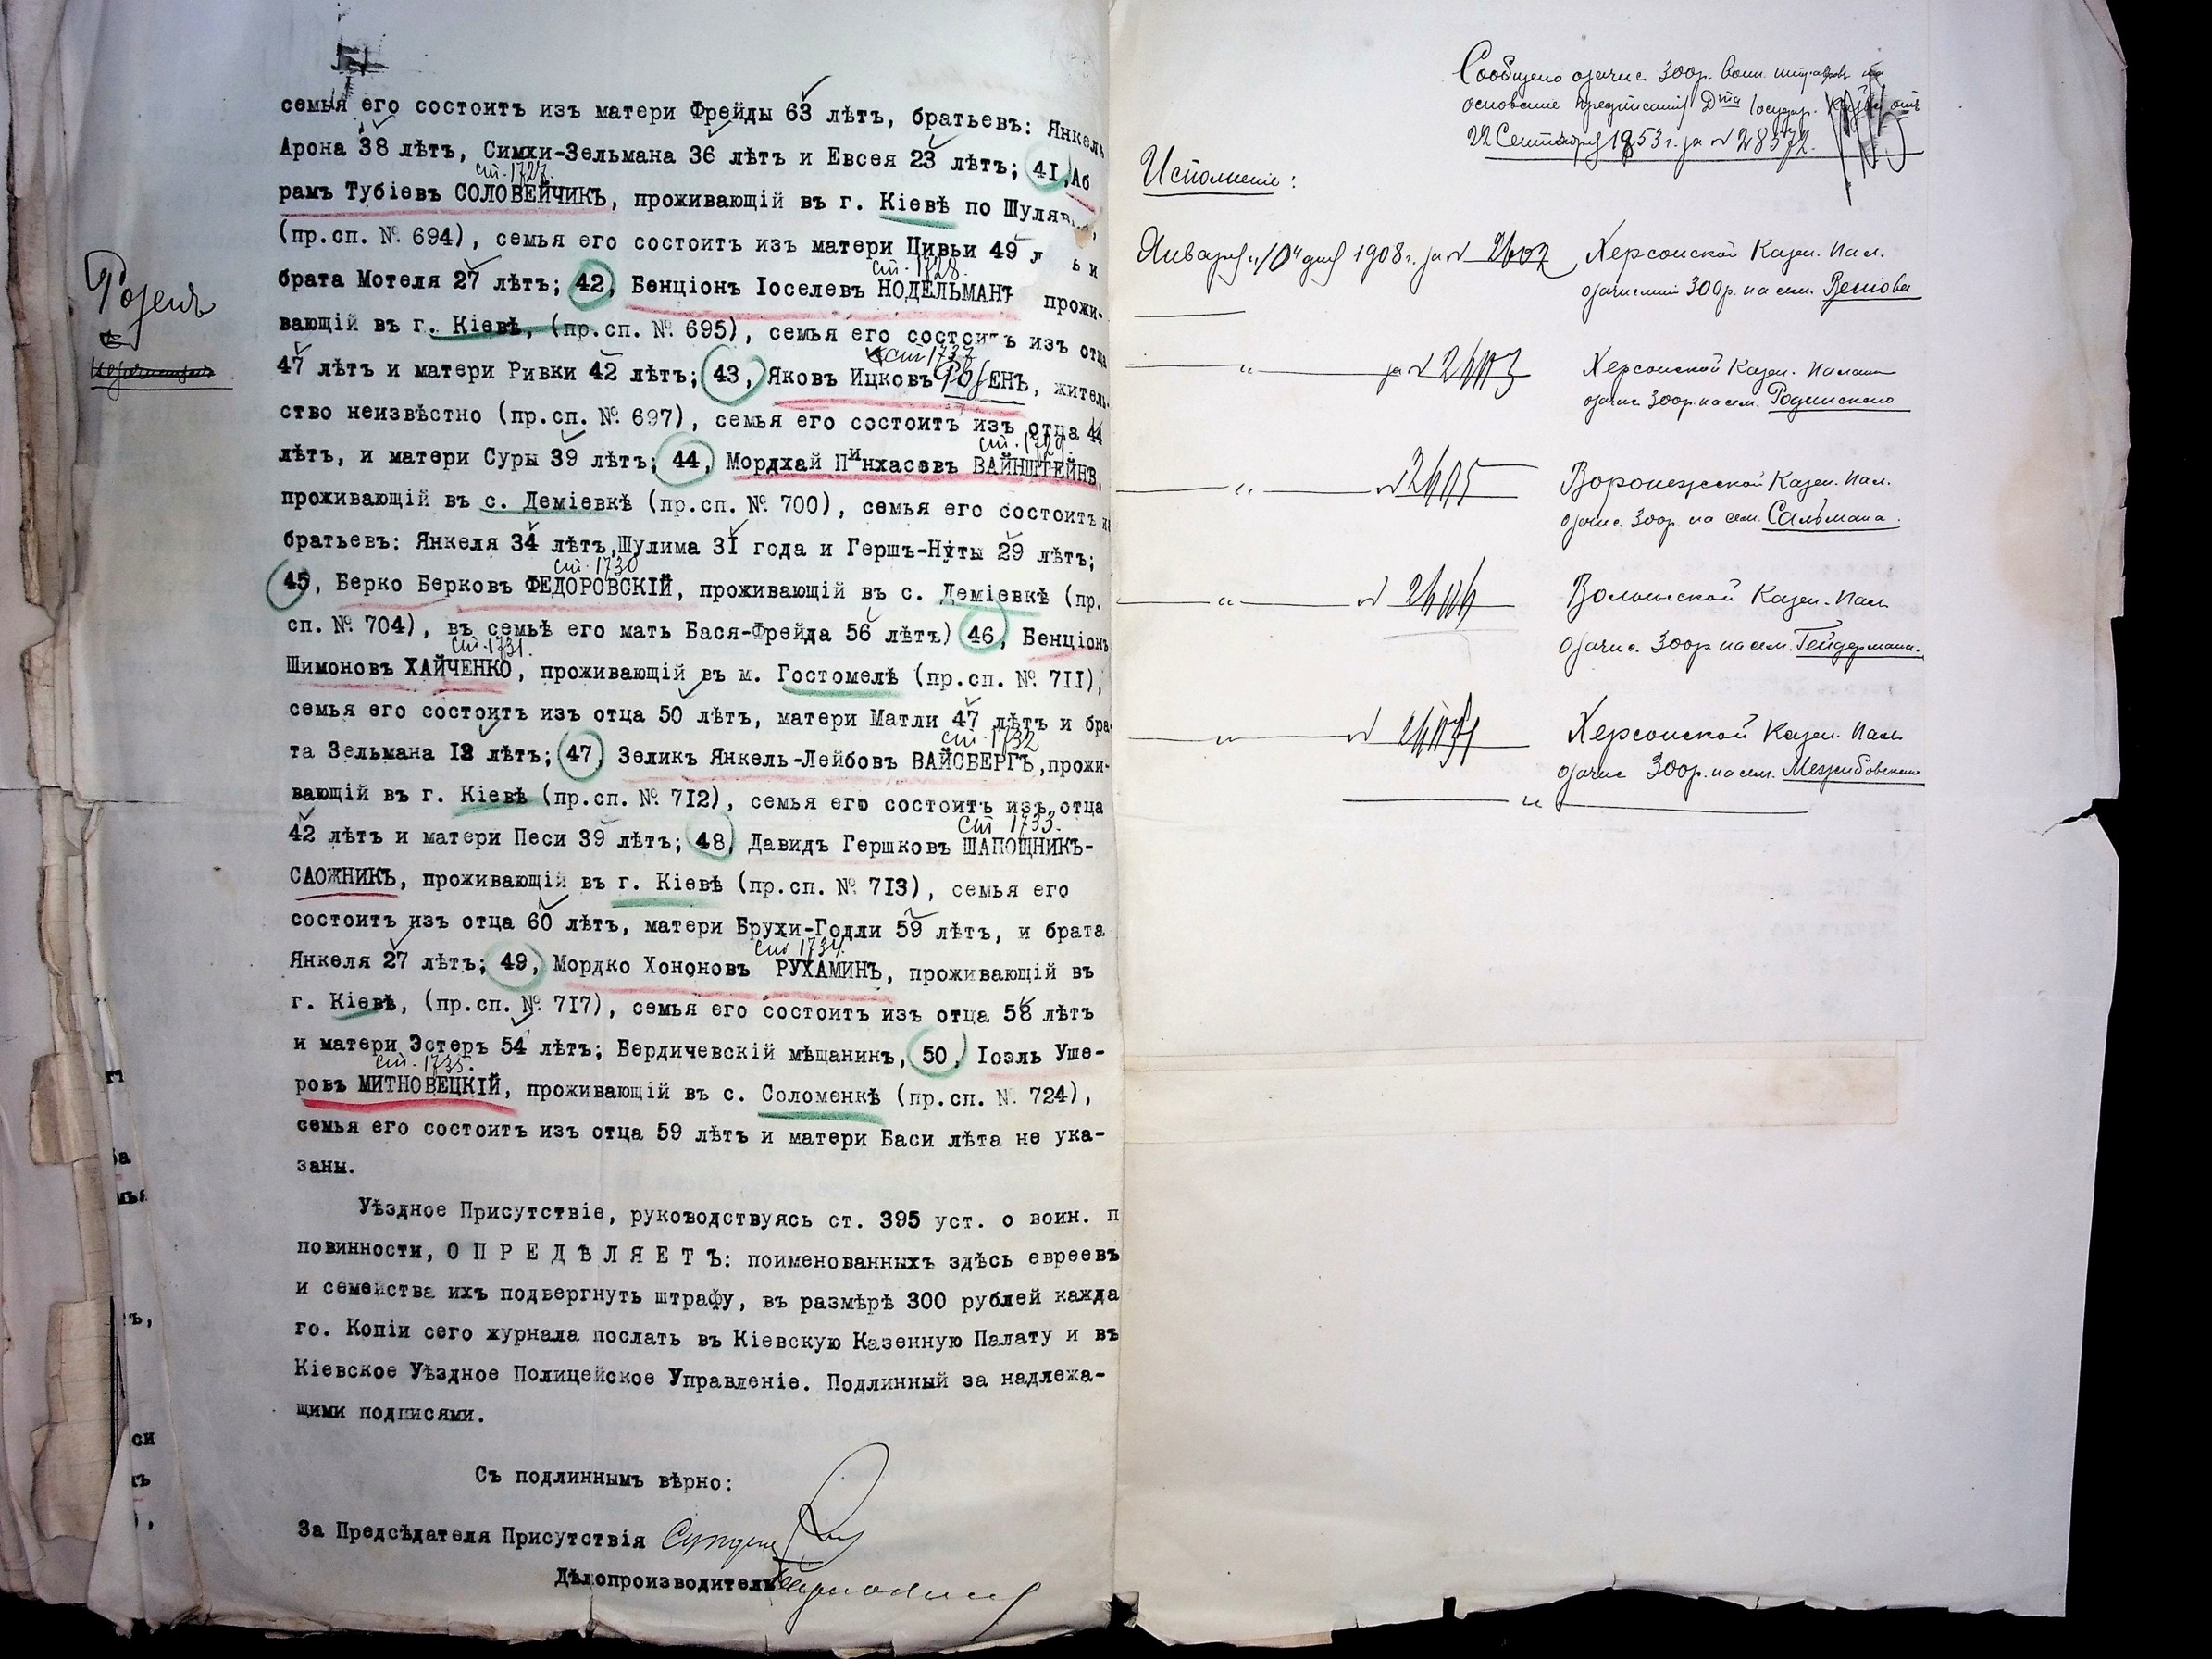 семья его состоитъ изъ матери Фрейды 63 лѣтъ, братьевъ: Янкель
Арона 38 лѣтъ, Симхи-Зельмана 36 лѣтъ и Евсея 23 лѣтъ; 41, Аб
ст. 1727.
рамъ Тубіевъ СОЛОВЕЙЧИКЪ, проживающій въ г. Кіевѣ по
(пр.сп. № 694), семья его состоитъ изъ матери Цивьи 49 л ь и
ст. 1728.
брата Мотеля 27 лѣтъ; 42, Бенціонъ Іоселевъ НОДЕЛЬМАНЪ прожи-
вающій въ г. Кіевѣ, (пр.сп. № 695), семья его состоитъ изъ отца
ст 1737
47 лѣтъ и матери Ривки 42 лѣтъ; 43, Яковъ Ицковъ РОЗЕНЪ, житель-
ство неизвѣстно (пр.сп. № 697), семья его состоитъ изъ отца 44
ст. 1729.
лѣтъ, и матери Суры 39 лѣтъ; 44, Мордхай Пинхасовъ ВАЙНШТЕЙНЪ,
проживающій въ с. Деміевкѣ (пр.сп. № 700), семья его состоитъ и
братьевъ: Янкеля 34 лѣтъ, Шулима 3I года и Гершъ-Нуты 29 лѣтъ;
ст. 1730
45, Берко Берковъ ФЕДОРОВСКІЙ, проживающій въ с. Деміевкѣ (пр.
сп. № 704), въ семьѣ его мать Бася-Фрейда 56 лѣтъ) 46, Бенціонъ
ст. 1731.
Шимоновъ ХАЙЧЕНКО, проживающій въ м. Гостомелѣ (пр.сп. № 7II),
семья его состоитъ изъ отца 50 лѣтъ, матери Матли 47 лѣтъ и бра
ст. 1732
та Зельмана I2 лѣтъ; 47, Зеликъ Янкель-Лейбовъ ВАЙСБЕРГЪ, прожи-
вающій въ г. Кіевѣ (пр.сп. № 7I2), семья его состоитъ изъ отца
ст 1733.
42 лѣтъ и матери Песи 39 лѣтъ; 48, Давидъ Гершковъ ШАПОЩНИКЪ-
САОЖНИКЪ, проживающій въ г. Кіевѣ (пр.сп. № 7I3), семья его
состоитъ изъ отца 60 лѣтъ, матери Брухи-Годли 59 лѣтъ, и брата
ст 1734.
Янкеля 27 лѣтъ; 49, Мордко Хононовъ РУХАМИНЪ, проживающій въ
г. Кіевѣ, (пр.сп. № 7I7), семья его состоитъ изъ отца 58 лѣтъ
и матери Эстеръ 54 лѣтъ; Бердичевскій мѣщанинъ, 50, Іоэль Уше-
ст. 1735.
ровъ МИТНОВЕЦКІЙ, проживающій въ с. Соломенкѣ (пр.сп. № 724),
семья его состоитъ изъ отца 59 лѣтъ и матери Баси лѣта не ука-
заны.
Уѣздное Присутствіе, руководствуясь ст. 395 уст. о воин. п
повинности, О П Р Е Д Ѣ Л Я Е Т Ъ: поименованныхъ здѣсь евреевъ
и семейства ихъ подвергнуть штрафу, въ размѣрѣ 300 рублей кажда
го. Копіи сего журнала послать въ Кіевскую Казенную Палату и въ
Кіевское Уѣздное Полицейское Управленіе. Подлинный за надлежа-
щими подписями.
Съ подлиннымъ вѣрно:
За Предсѣдателя Присутствія
Дѣлопроизводитель
Розенъ
Сообщено о зачис. 300р.
основаніе предписанія Д-та Государ. Казн. отъ
22 Сентября 1853 г. за № 28572.
Исполненіе:
Января "10" дня 1908 г. за № 2602 Херсонской Казен. Пал.
о зачисленіи 300р. на сем.
" за № Херсонской Казен. Палаты
о зачис 300р. на сем. Родинскаго
" № Воронежской Казен. Пал.
о зачис. 300р. на сем. Сальмана.
" № Волынской Казен. Пал
о зачис. 300р на сем. Гейдермана.
" № Херсонской Казен. Пал
о зачис 300р. на сем.